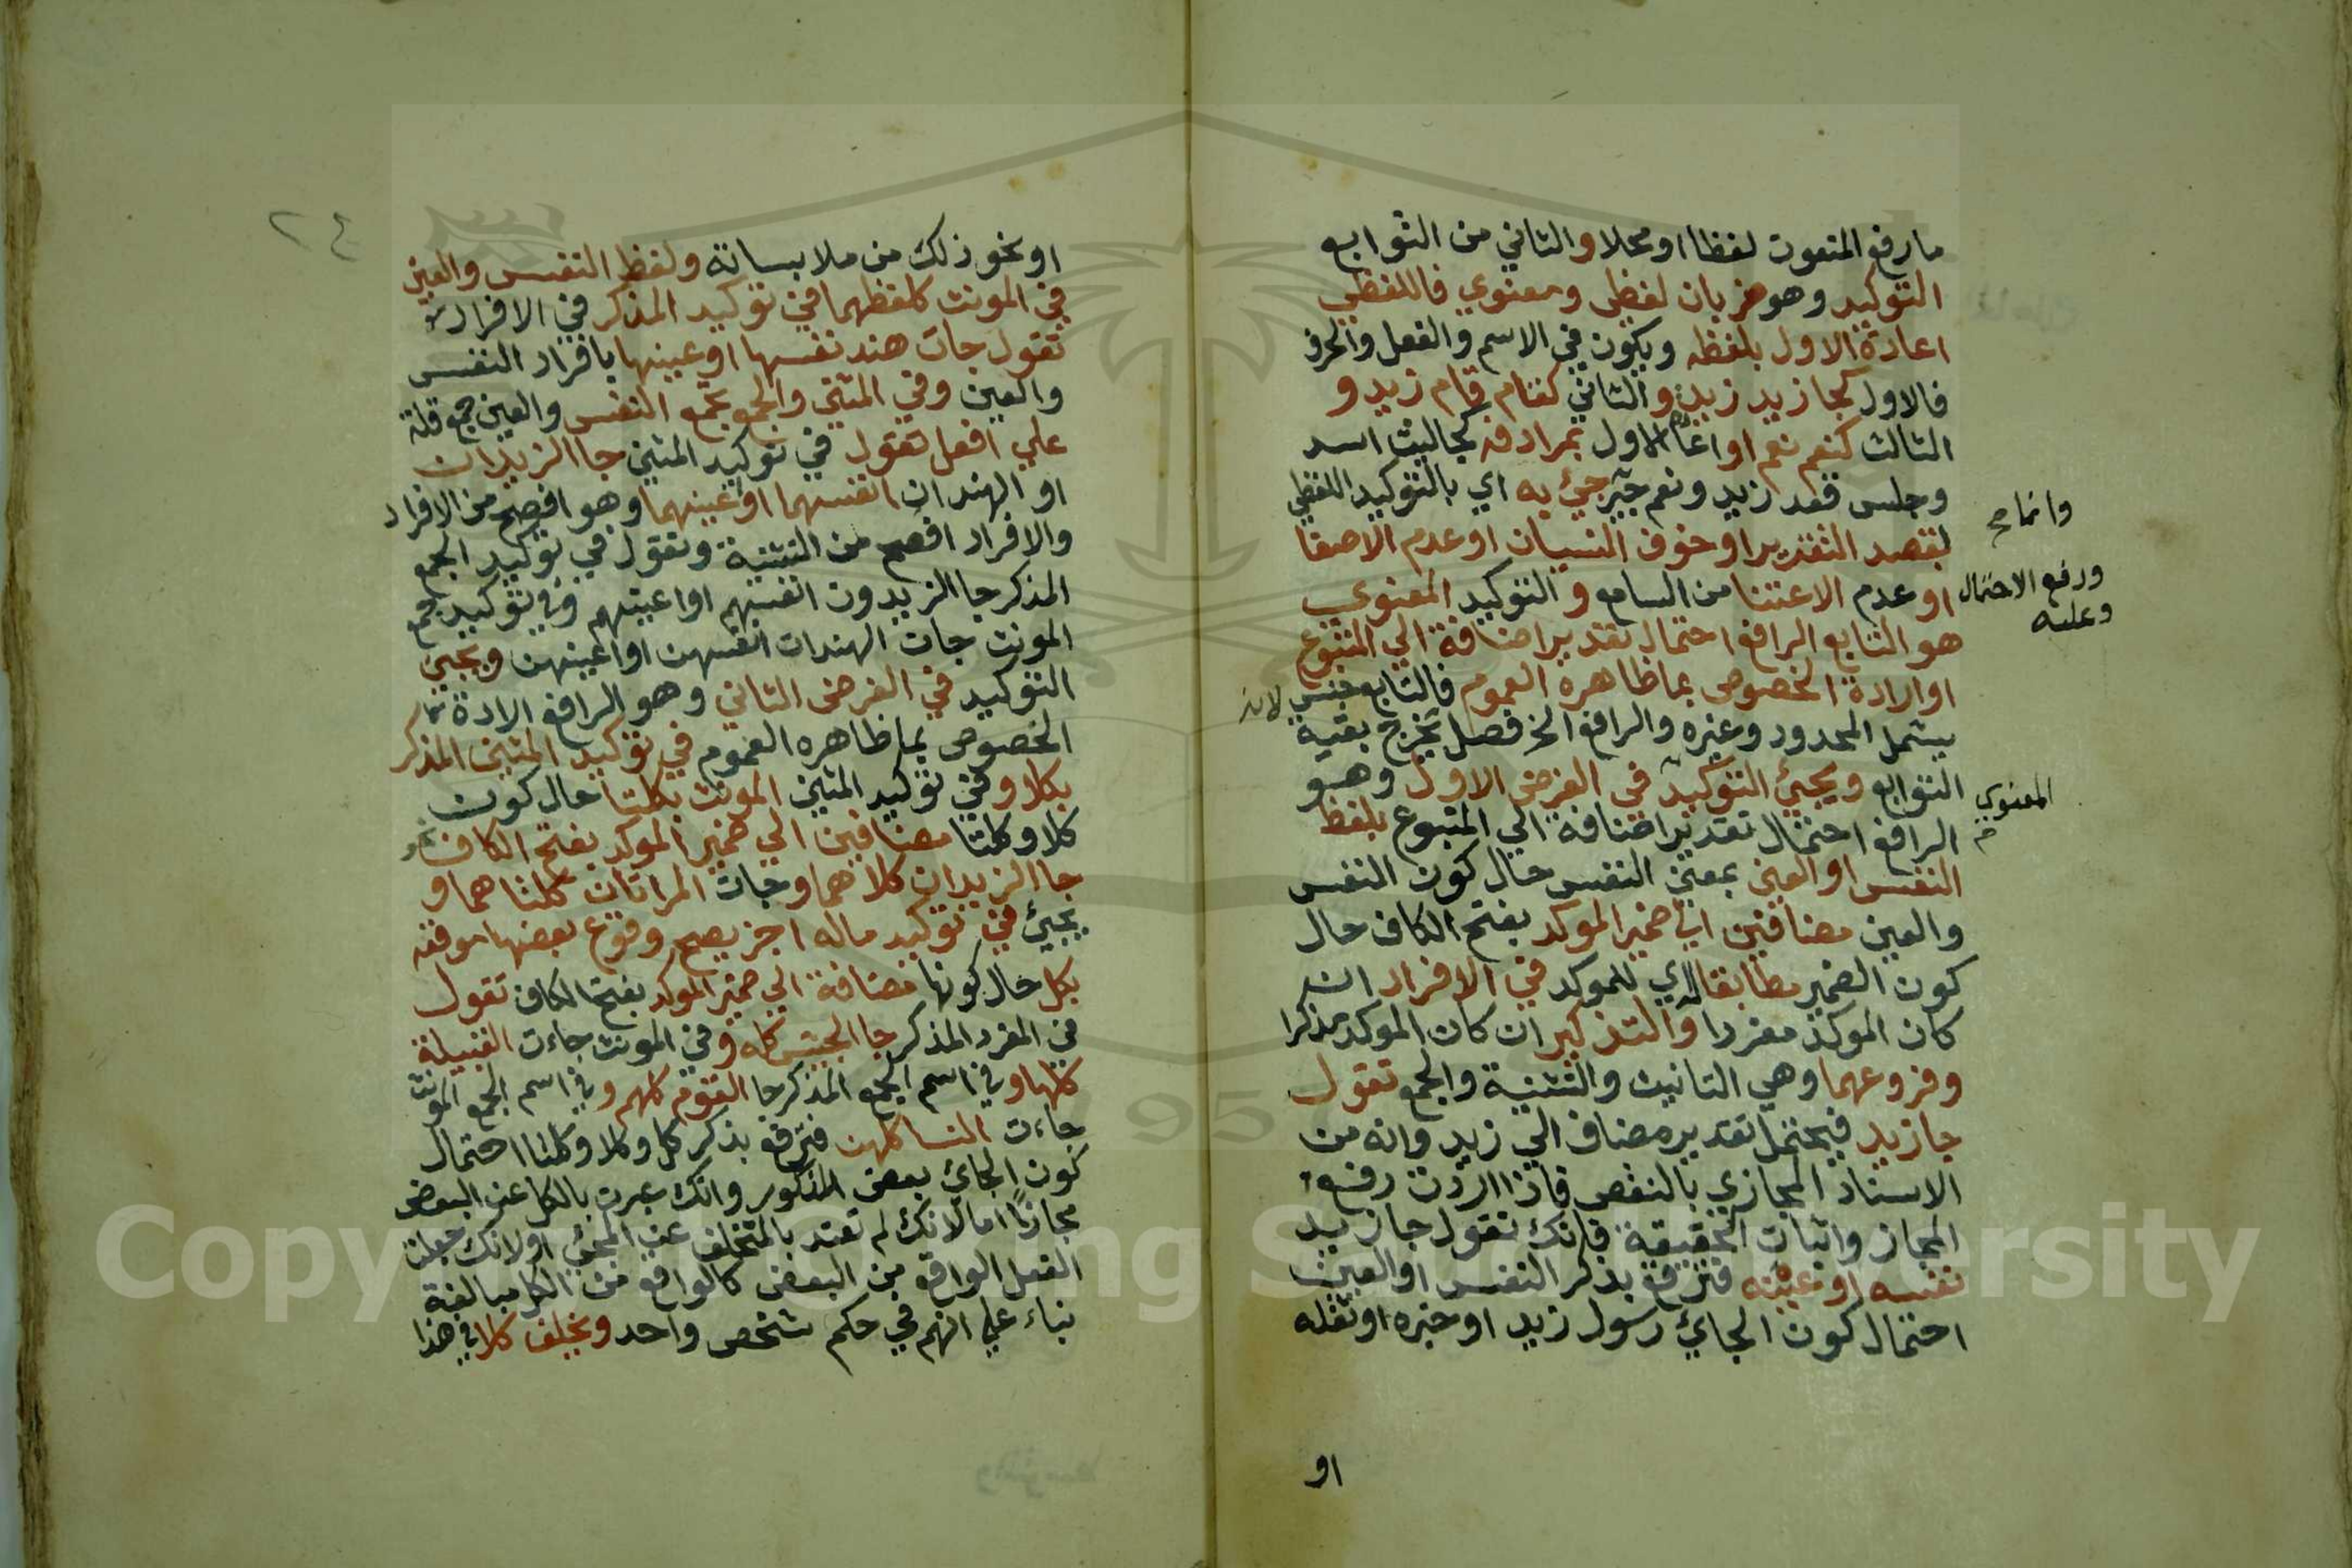 ما رفع المنعوت لفظا او محلا والثاني من التوابع
التوكيد وهو ضربان لفظي ومعنوي فاللفظي
اعادة الاول بلفظه ويكون في الاسم والفعل والحرف
فالاول كجا زيد زيد والثاني كقام قام زيد و
الثالث كنعم نعم او اعادة الاول بمرادفه كجا ليث اسد
وجلس قعد زيد ونعم جير جيء به اي بالتوكيد اللفظي
وانما صح
لقصد التقرير او خوف النسيان او عدم الاصغا
او عدم الاعتنا من السامع والتوكيد المعنوي
ورفع الاحتمال
وعليه
هو التابع الرافع احتمال تقدير اضافة الي المتبوع
او ارادة الخصوص بما ظاهره العموم فالتابع جنس لانه
يشمل المحدود وغيره والرافع الخ فصل يخرج بقية
التوابع ويجيء التوكيد في الغرض الاول وهو
المعنوي
الرافع احتمال تقدير اضافة الي المتبوع بلفظ
النفس او العين بمعني النفس حال كون النفس
والعين مضافين الي ضمير الموكد بفتح الكاف حال
كون الضمير مطابقا له اي للموكد في الافراد ان
كان الموكد مفردا والتذكير ان كان الموكد مذكرا
وفروعهما وهي التانيث والتثنية والجمع تقول
جا زيد فيحتمل تقدير مضاف الي زيد وانه من
الاسناد المجازي بالنقص فاذا اردت رفع
المجاز واثبات الحقيقة فانك تقول جا زيد
نفسه او عينه فترفع بذكر النفس او العين
احتمال كون الجائي رسول زيد او خبره او ثقله
او
٢٤
او نحو ذلك من ملابساته ولفظ النفس والعين
في المونث كلفظهما في توكيد المذكر في الافراد
تقول جات هند نفسها او عينها بافراد النفس
والعين وفي المثني والجمع تجمع النفس والعين جمع قلة
علي افعل تقول في توكيد المثني جا الزيدان
او الهندان انفسهما او اعينهما وهو افصح من الافراد
والافراد افصح من التثنية وتقول في توكيد الجمع
المذكر جا الزيدون انفسهم او اعينهم وفي توكيد جمع
المونث جات الهندات انفسهن او اعينهن ويجي
التوكيد في الغرض الثاني وهو الرافع الارادة
الخصوص بما ظاهره العموم في توكيد المثني المذكر
بكلا وفي توكيد المثني المونث بكلتا حال كون
كلا وكلتا مضافين الي ضمير الموكد بفتح الكاف نحو
جا الزيدان كلاهما وجات المراتان كلتاهما و
يجيء في توكيد ماله اجز يصح وقوع بعضها موقعه
بكل حال كونها مضافة الي ضمير الموكد بفتح الكاف تقول
في المفرد المذكر جا الجيش كله وفي المونث جاءت القبيلة
كلها وفي اسم الجمع المذكر جا القوم كلهم وفي اسم الجمع المونث
جاءت النسا كلهن فترفع بذكر كل وكلا وكلتا احتمال
كون الجائي بعض المذكور وانك عبرت بالكل عن البعض
مجازا اما لانك لم تعتد بالمتخلف عن المجيء او لانك جعلت
الفعل الواقع من البعض كالواقع من الكل مبالغة
بناء علي انهم في حكم شخص واحد ويخلف كلا في هذا